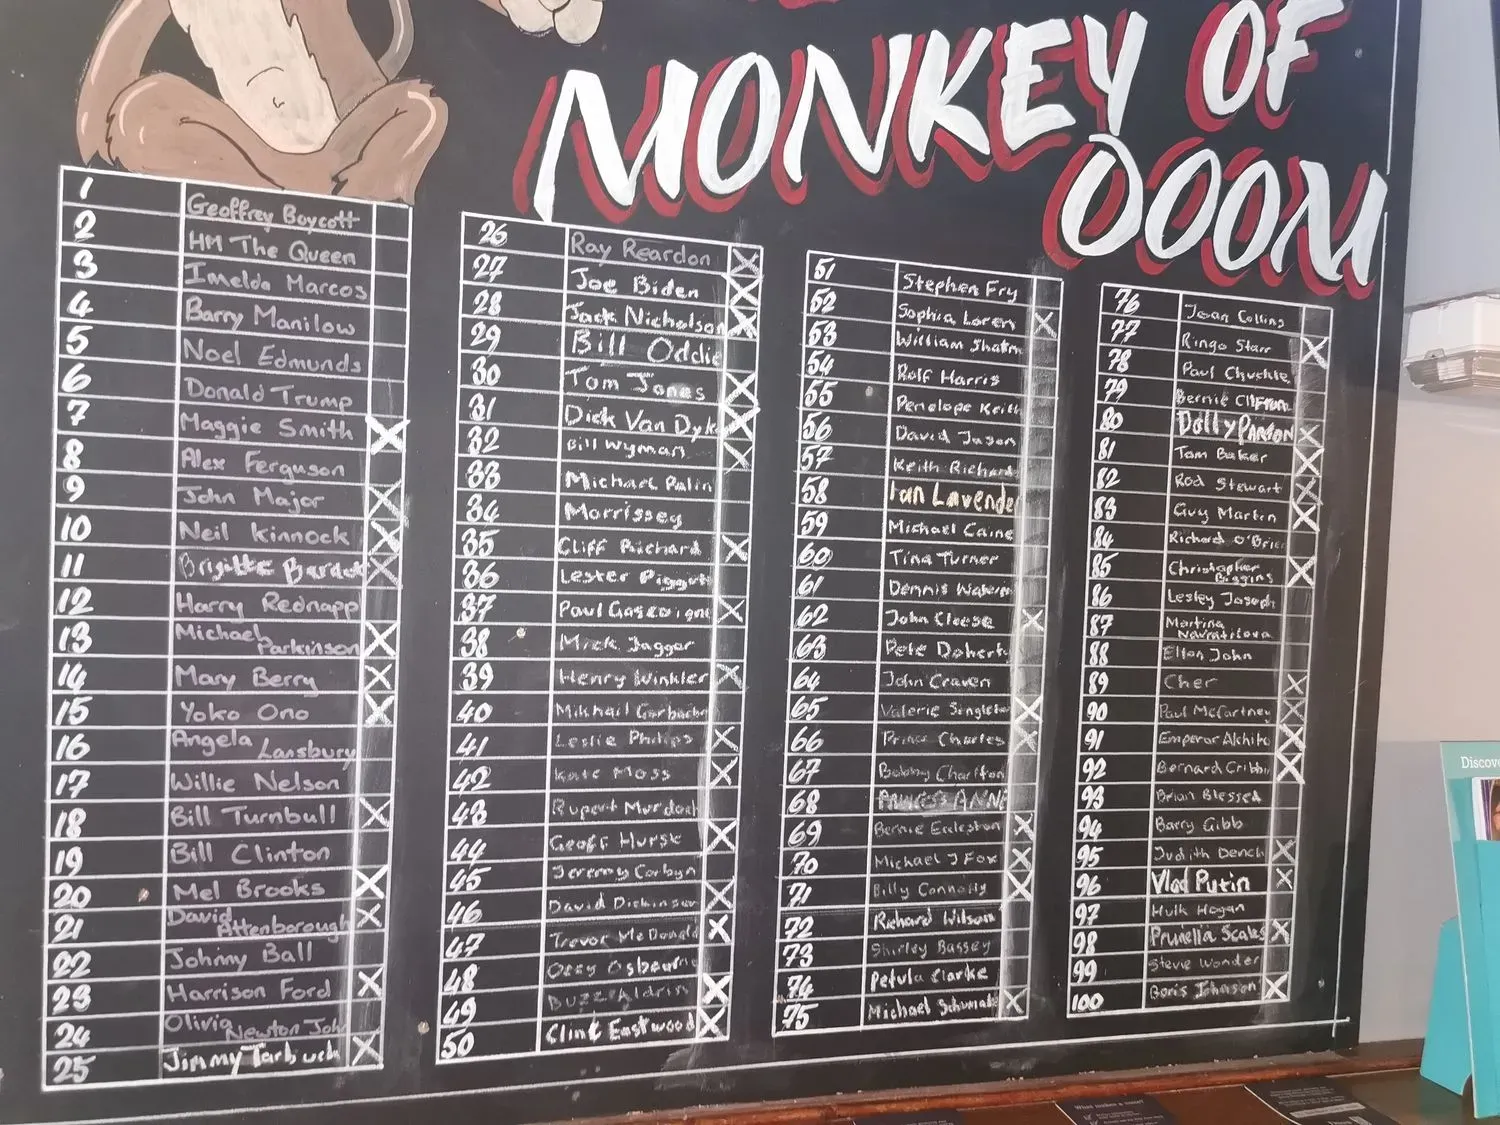 MONKEY OF
DOOM
1 Geoffrey Boycott
2 HM The Queen
3 Imelda Marcos
4 Barry Manilow
5 Noel Edmunds
6 Donald Trump
7 Maggie Smith X
8 Alex Ferguson
9 John Major X
10 Neil Kinnock X
11 Brigitte Bardot X
12 Harry Rednapp
13 Michael Parkinson X
14 Mary Berry X
15 Yoko Ono X
16 Angela Lansbury
17 Willie Nelson
18 Bill Turnbull X
19 Bill Clinton
20 Mel Brooks X
21 David Attenborough X
22 Johnny Ball
23 Harrison Ford X
24 Olivia Newton John
25 Jimmy Tarbuck X
26 Ray Reardon X
27 Joe Biden X
28 Jack Nicholson X
29 Bill Oddie
30 Tom Jones X
31 Dick Van Dyke X
32 Bill Wyman X
33 Michael Palin
34 Morrissey
35 Cliff Richard X
36 Lester Piggott
37 Paul Gascoigne X
38 Mick Jagger
39 Henry Winkler X
40 Mikhail Gorbachev
41 Leslie Philips X
42 Kate Moss X
43 Rupert Murdoch
44 Geoff Hurst X
45 Jeremy Corbyn
46 David Dickinson X
47 Trevor McDonald X
48 Ozzy Osbourne
49 Buzz Aldrin X
50 Clint Eastwood X
51 Stephen Fry
52 Sophia Loren X
53 William Shatn
54 Rolf Harris
55 Penelope Keith
56 David Jason
57 Keith Richard
58 Ian Lavender
59 Michael Caine
60 Tina Turner
61 Dennis Waterm
62 John Cleese X
63 Pete Doherty
64 John Craven
65 Valerie Singleton X
66 Prince Charles X
67 Bobby Charlton
68 PRINCESS ANNE
69 Bernie Ecleston X
70 Michael J Fox X
71 Billy Connolly X
72 Richard Wilson
73 Shirley Bassey
74 Petula Clarke
75 Michael Schumak X
76 Joan Collins
77 Ringo Starr X
78 Paul Chuckle
79 Bernie Clifton
80 Dolly PARTON X
81 Tom Baker X
82 Rod Stewart X
83 Guy Martin X
84 Richard O'Brien
85 Christopher Biggins X
86 Lesley Joseph
87 Martina Navratilova
88 Elton John
89 Cher X
90 Paul McCartney X
91 Emperor Akihito X
92 Bernard Cribbins X
93 Brian Blessed
94 Barry Gibb
95 Judith Dench X
96 Vlad Putin X
97 Hulk Hogan
98 Prunella Scales X
99 Stevie Wonder
100 Boris Johnson X
Discove